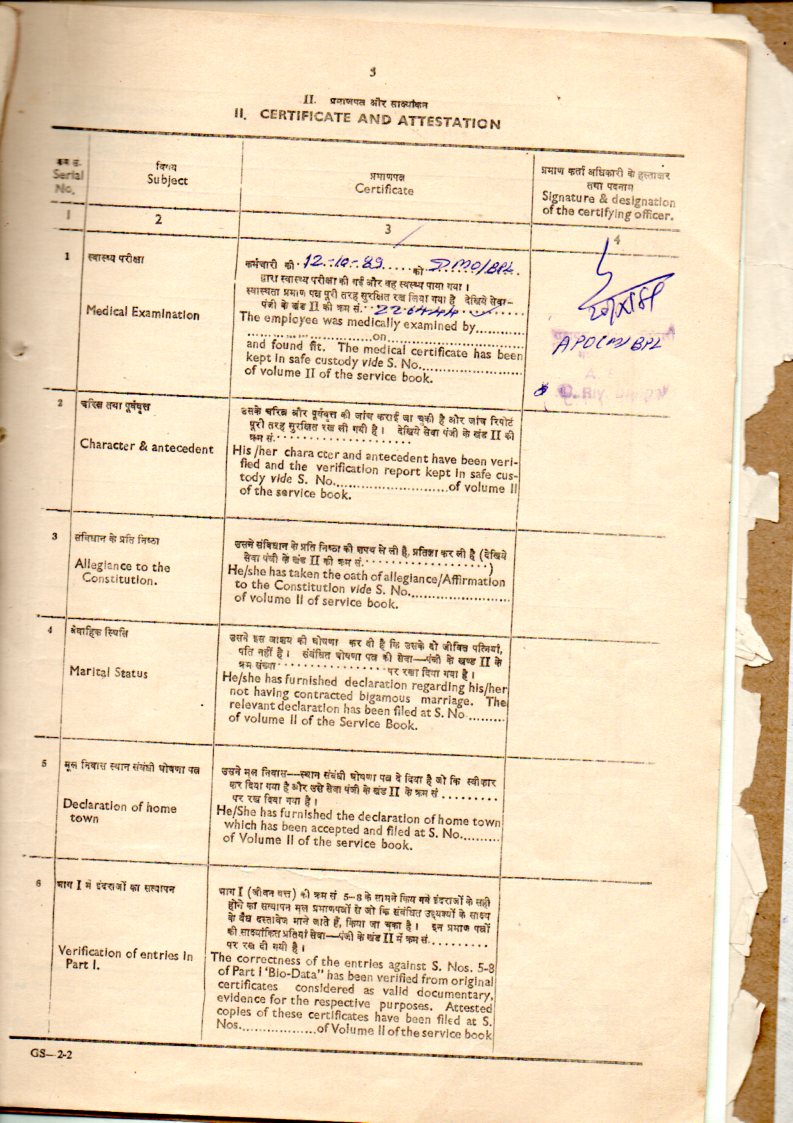 3
II. प्रमाणपत्र और साक्ष्यांकन
II. CERTIFICATE AND ATTESTATION
क्रम सं.
Serial No.
विषय
Subject
प्रमाणपत्र
Certificate
प्रमाण कर्ता अधिकारी के हस्ताक्षर
तथा पदनाम
Signature & designation
of the certifying officer.
1
2
3
4
1
स्वास्थ्य परीक्षा
Medical Examination
कर्मचारी की 12-10-89 को DMO/BPL
द्वारा स्वास्थ्य परीक्षा की गई और वह स्वस्थ्य पाया गया।
स्वास्थ्यता प्रमाण पत्र पूरी तरह सुरक्षित रख लिया गया है देखिये सेवा-
पंजी के खंड II की क्रम सं.
The employee was medically examined by............
..............................on..............................
and found fit. The medical certificate has been
kept in safe custody vide S. No........................
of volume II of the service book.
APO(M)/BPL
2
चरित्र तथा पूर्ववृत्त
Character & antecedent
उसके चरित्र और पूर्ववृत्त की जांच कराई जा चुकी है और जांच रिपोर्ट
पूरी तरह सुरक्षित रख ली गयी है। देखिये सेवा पंजी के खंड II की
क्रम सं. ......................
His /her character and antecedent have been veri-
fied and the verification report kept in safe cus-
tody vide S. No...........................of volume II
of the service book.
3
संविधान के प्रति निष्ठा
Allegiance to the
Constitution.
उसने संविधान के प्रति निष्ठा की शपथ ले ली है, प्रतिज्ञा कर ली है (देखिये
सेवा पंजी के खंड II की क्रम सं. ....................)
He/she has taken the oath of allegiance/Affirmation
to the Constitution vide S. No........................
of volume II of service book.
4
वैवाहिक स्थिति
Marital Status
उसने इस आशय की घोषणा कर दी है कि उसके दो जीवित पत्नियां,
पति नहीं है। संबंधित घोषणा पत्र की सेवा—पंजी के खण्ड II के
क्रम संख्या ....................पर रखा दिया गया है।
He/she has furnished declaration regarding his/her
not having contracted bigamous marriage. The
relevant declaration has been filed at S. No.........
of volume II of the Service Book.
5
मूल निवास स्थान संबंधी घोषणा पत्र
Declaration of home
town
उसने मूल निवास—स्थान संबंधी घोषणा पत्र दे दिया है जो कि स्वीकार
कर दिया गया है और उसे सेवा पंजी के खंड II के क्रम सं ..........
पर रख दिया गया है।
He/She has furnished the declaration of home town
which has been accepted and filed at S. No.........
of Volume II of the service book.
6
भाग I में इंदराजों का सत्यापन
Verification of entries in
Part I.
भाग I (जीवन वृत्त) की क्रम सं 5-8 के सामने किय गये इंदराजों के सही
होने का सत्यापन मूल प्रमाणपत्रों से जो कि संबंधित उद्देश्यों के साक्ष्य
के वैध दस्तावेज माने जाते हैं, किया जा चुका है। इन प्रमाण पत्रों
की साक्ष्यांकित प्रतियां सेवा—पंजी के खंड II में क्रम सं..........
पर रख दी गयी है।
The correctness of the entries against S. Nos. 5-8
of Part I "Bio-Data" has been verified from original
certificates considered as valid documentary,
evidence for the respective purposes. Attested
copies of these certificates have been filed at S.
Nos..................of Volume II of the service book
GS—2-2